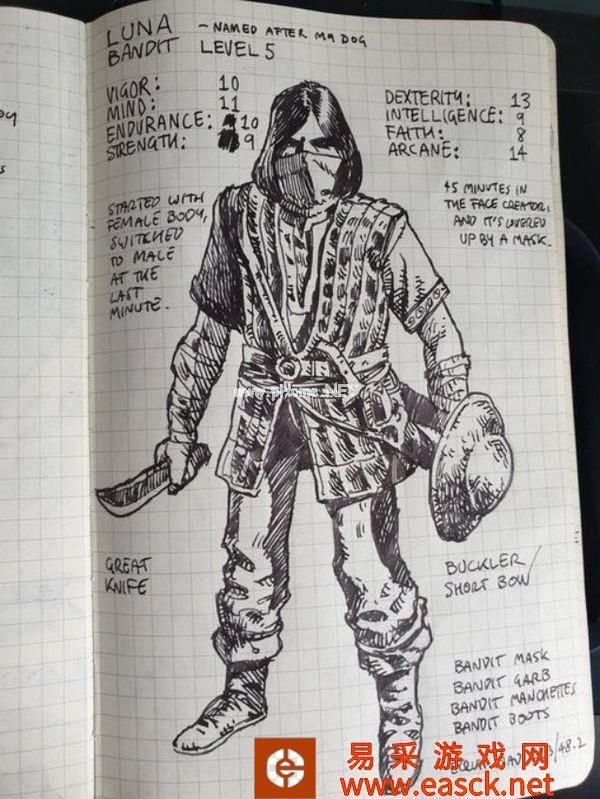 LUNA — NAMED AFTER MY DOG
BANDIT LEVEL 5
VIGOR: 10
MIND: 11
ENDURANCE: 10
STRENGTH: 9
DEXTERITY: 13
INTELLIGENCE: 9
FAITH: 8
ARCANE: 14
STARTED WITH
FEMALE BODY,
SWITCHED
TO MALE
AT THE
LAST
MINUTE.
45 MINUTES IN
THE FACE CREATOR,
AND IT'S COVERED
UP BY A MASK.
GREAT
KNIFE
BUCKLER/
SHORT BOW
BANDIT MASK
BANDIT GARB
BANDIT MANCHETTES
BANDIT BOOTS
/48.2
易采游戏网
www.easck.net